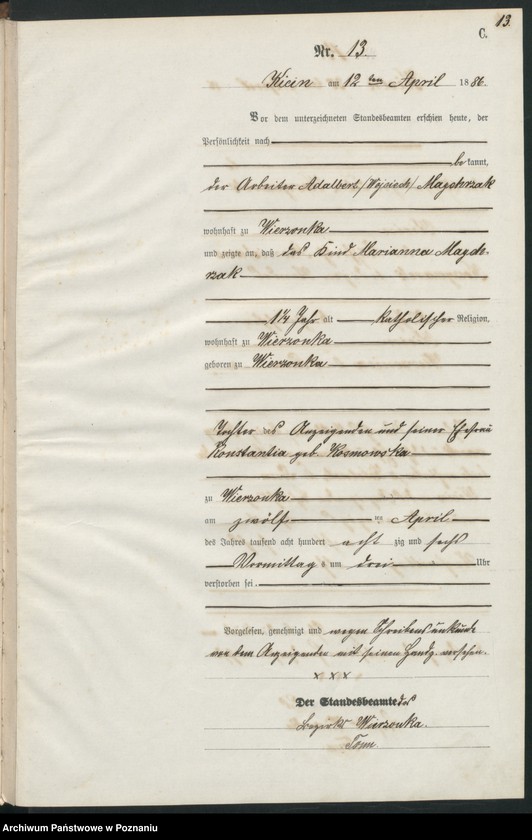 13.
C.
Nr. 13.
Kicin am 12ten April 1886.
Vor dem unterzeichneten Standesbeamten erschien heute, der
Persönlichkeit nach
bekannt,
der Arbeiter Adalbert /Wojciech/ Magdchrzak
wohnhaft zu Wierzonka
und zeigte an, daß das Kind Marianna Magdch-
rzak
1¼ Jahr alt katholischer Religion,
wohnhaft zu Wierzonka
geboren zu Wierzonka
Tochter des Anzeigenden und seiner Ehefrau
Konstantia geb. Kosmowska
zu Wierzonka
am zwölften April
des Jahres tausend acht hundert achtzig und sechs
Vormittags um drei Uhr
verstorben sei.
Vorgelesen, genehmigt und wegen Schreibensunkunde
von dem Anzeigenden mit seinen Handz. versehen.
x x x
Der Standesbeamte des
Bezirks Wierzonka.
Archiwum Państwowe w Poznaniu